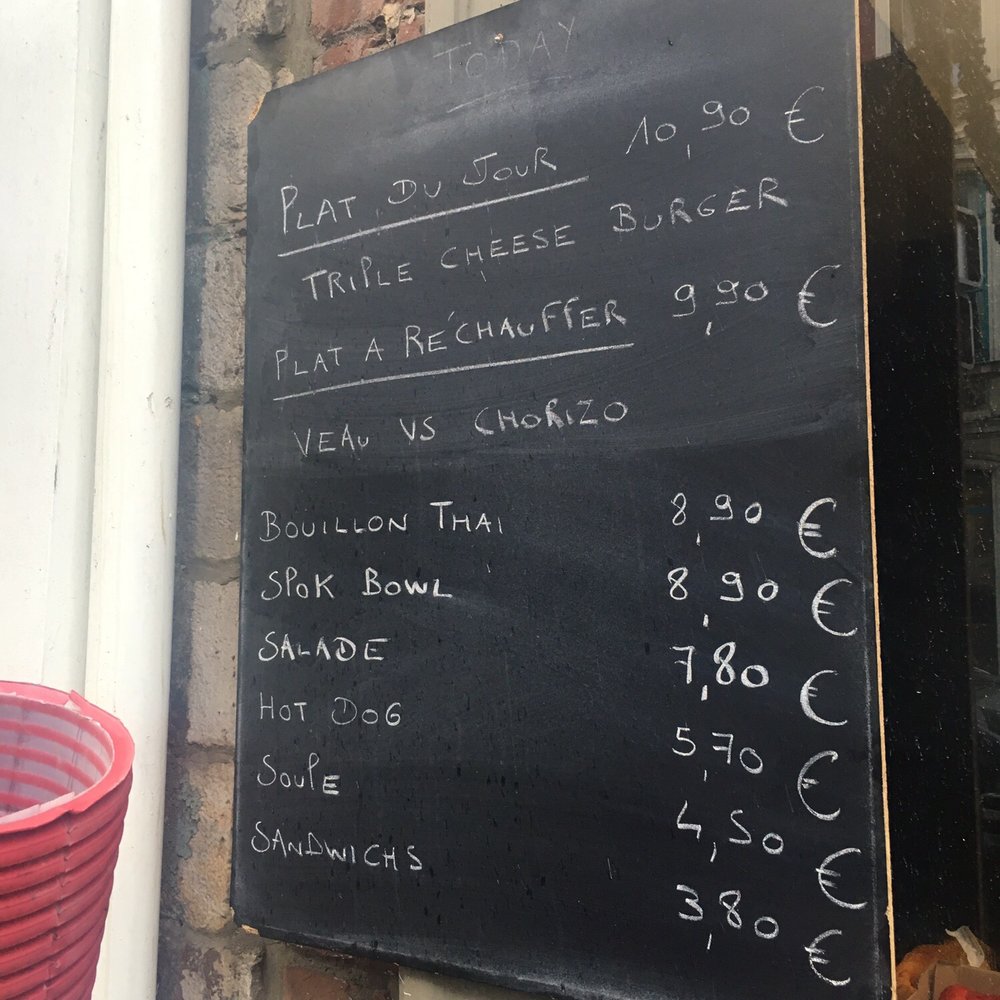 TODAY
PLAT DU JOUR 10,90 €
TRIPLE CHEESE BURGER
PLAT A RÉCHAUFFER 9,90 €
VEAU VS CHORIZO
BOUILLON THAI 8,90 €
SPOK BOWL 8,90 €
SALADE 7,80 €
HOT DOG 5,70 €
SOUPE 4,50 €
SANDWICHS 3,80 €